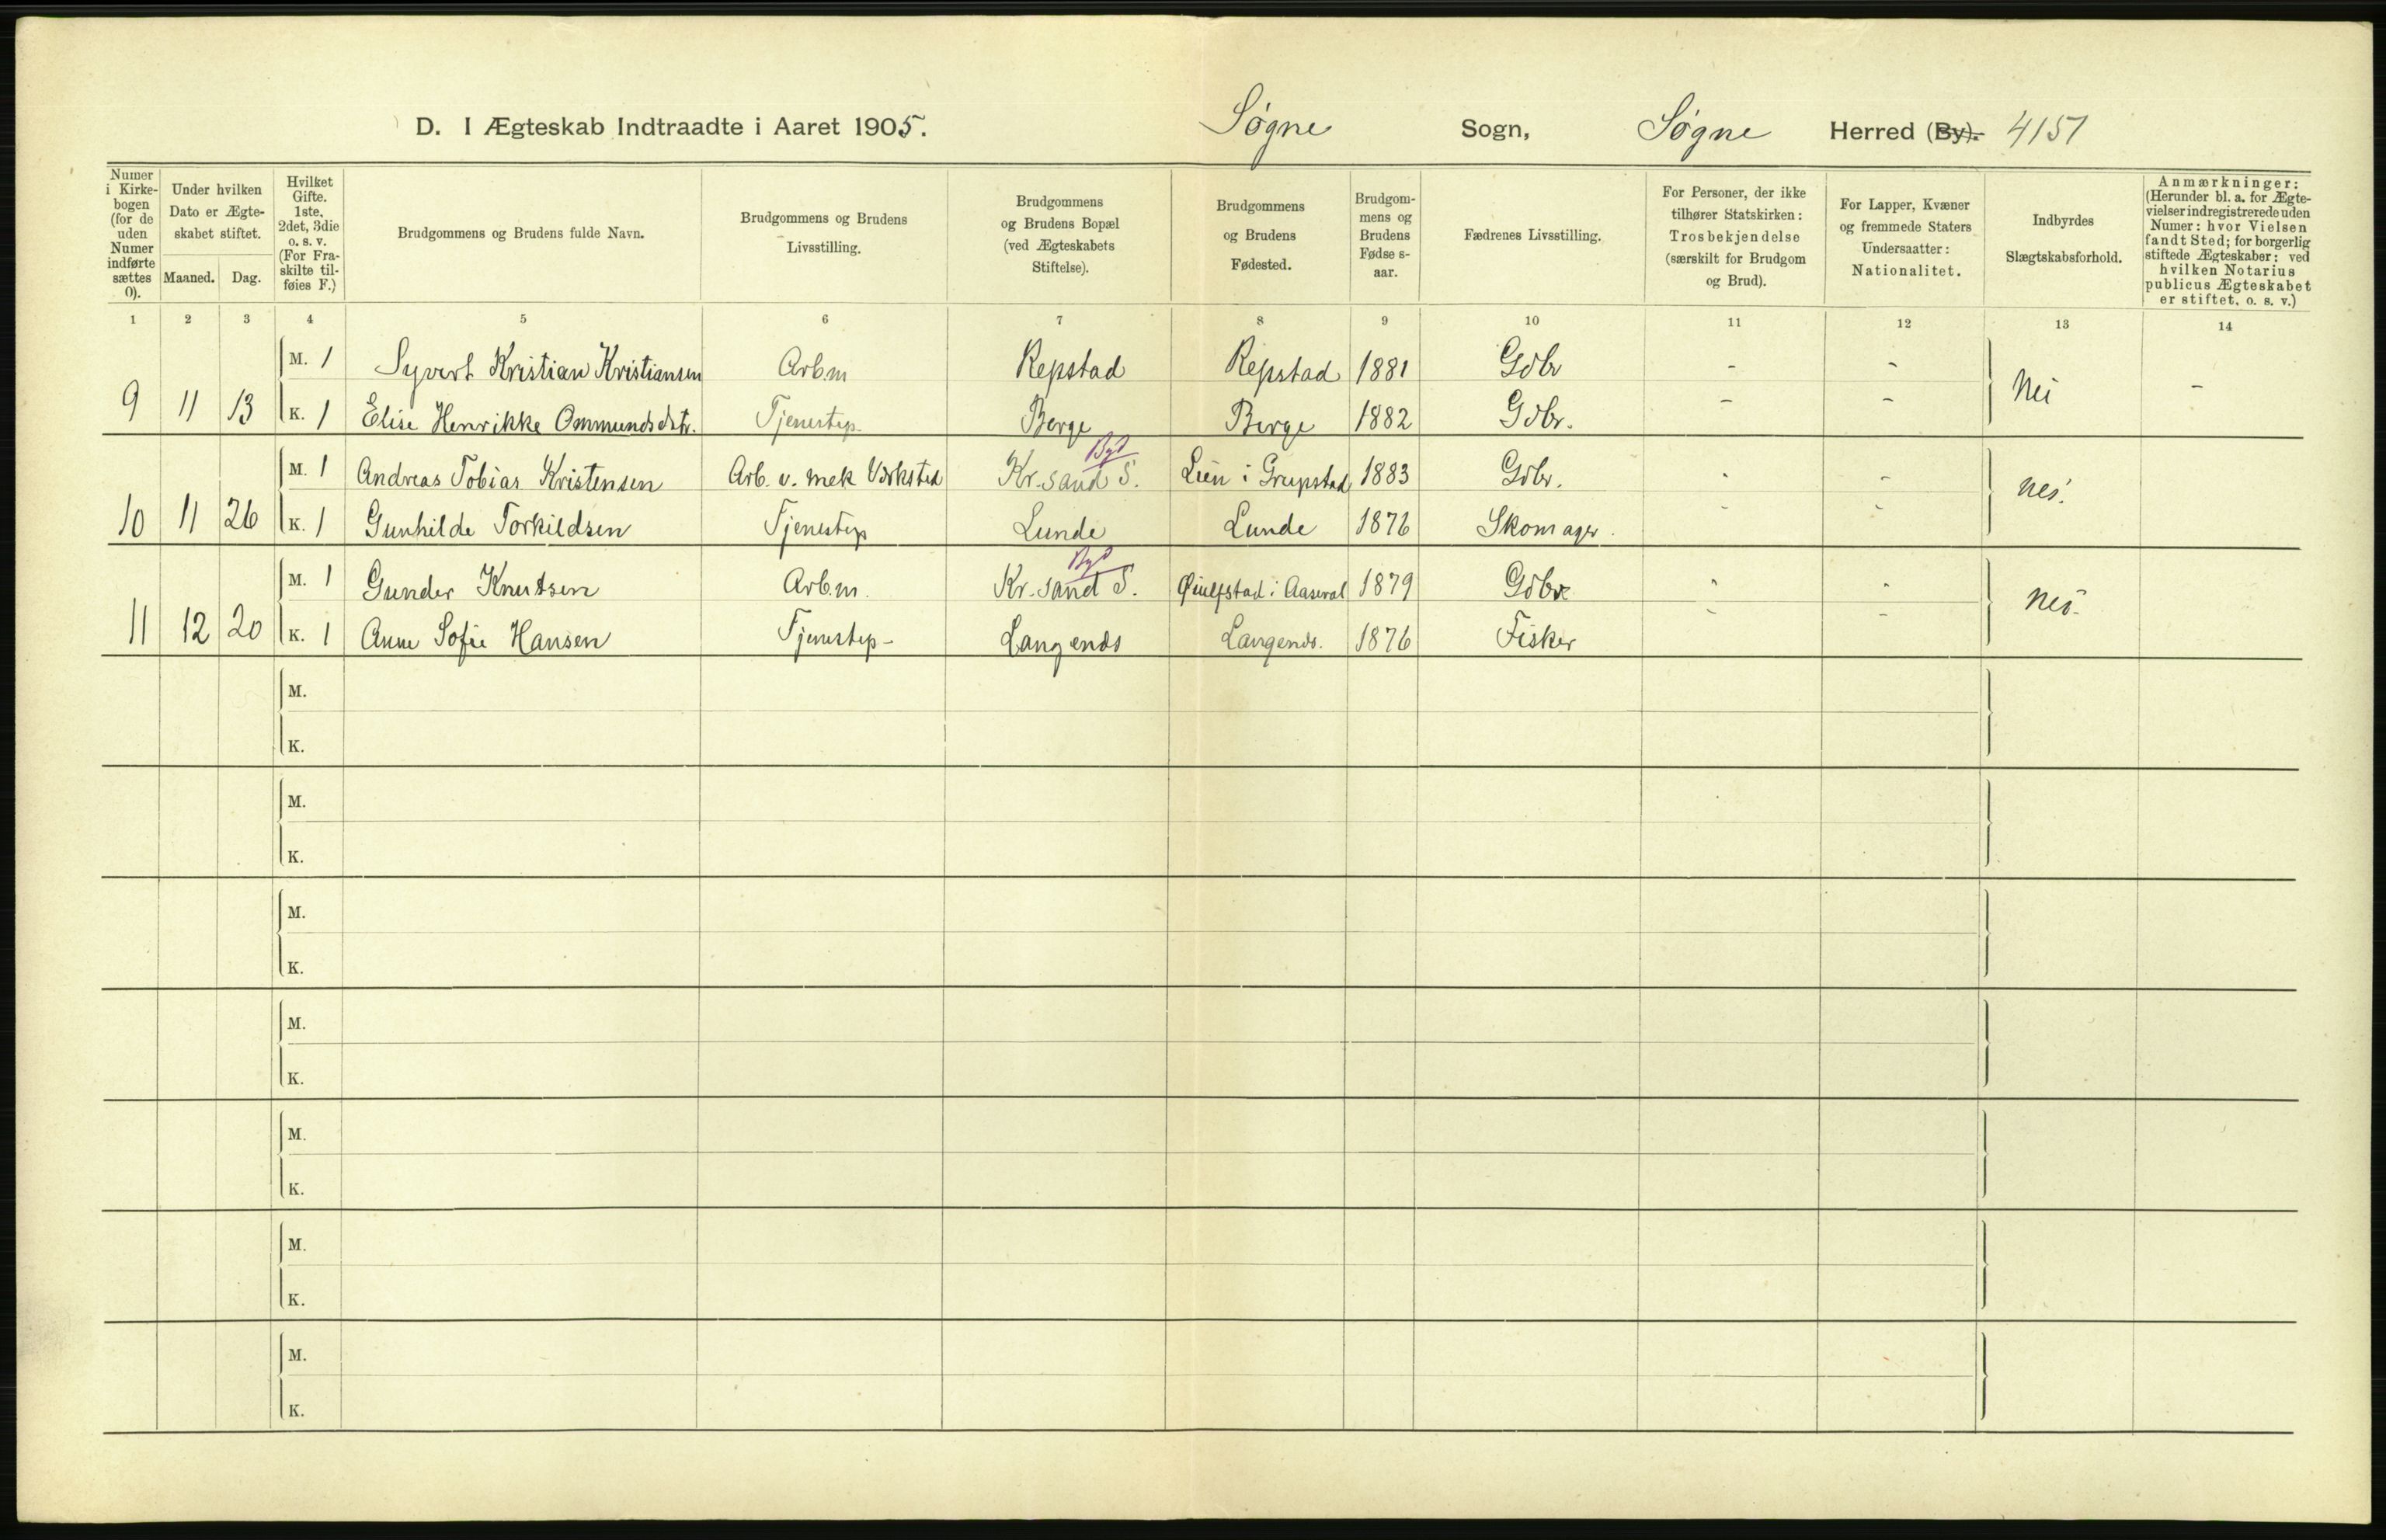 D. I Ægteskab Indtraadte i Aaret 1905. Søgne Sogn, Søgne Herred (By). 4151
Numer i Kirkebogen (for de uden Numer indførte sættes 0).
Under hvilken Dato er Ægteskabet stiftet.
Maaned. Dag.
Hvilket Gifte. 1ste, 2det, 3die o. s. v. (For Fraskilte tilføies F.)
Brudgommens og Brudens fulde Navn.
Brudgommens og Brudens Livsstilling.
Brudgommens og Brudens Bopæl (ved Ægteskabets Stiftelse).
Brudgommens og Brudens Fødested.
Brudgommens og Brudens Fødse s-aar.
Fædrenes Livsstilling.
For Personer, der ikke tilhører Statskirken: Trosbekjendelse (særskilt for Brudgom og Brud).
For Lapper, Kvæner og fremmede Staters Undersaatter: Nationalitet.
Indbyrdes Slægtskabsforhold.
Anmærkninger: (Herunder bl. a. for Ægtevielser indregistrerede uden Numer: hvor Vielsen fandt Sted; for borgerlig stiftede Ægteskaber: ved hvilken Notarius publicus Ægteskabet er stiftet, o. s. v.)
1 2 3 4 5 6 7 8 9 10 11 12 13 14
M. 1 Syvert Kristian Kristiansen Arb.m Repstad Repstad 1881 Gdbr - -
9 11 13 K. 1 Elise Henrikke Ommundsdtr. Tjenestep. Berge Berge 1882 Gdbr. - - Nei -
By
M. 1 Andreas Tobias Kristensen Arb. v. mek Værksted Kr.sand S. Lien i 1883 Gdbr. - -
10 11 26 K. 1 Gunhilde Torkildsen Tjenestep Lunde Lunde 1876 Skomager. - - nei.
By
M. 1 Gunder Knutsen Arb.m. Kr.sand S. i Aaseral 1879 Gdbr - -
11 12 20 K. 1 Anne Sofie Hansen Tjenestep- Langenes Langenes. 1876 Fisker - - nei.
M.
K.
M.
K.
M.
K.
M.
K.
M.
K.
M.
K.
M.
K.